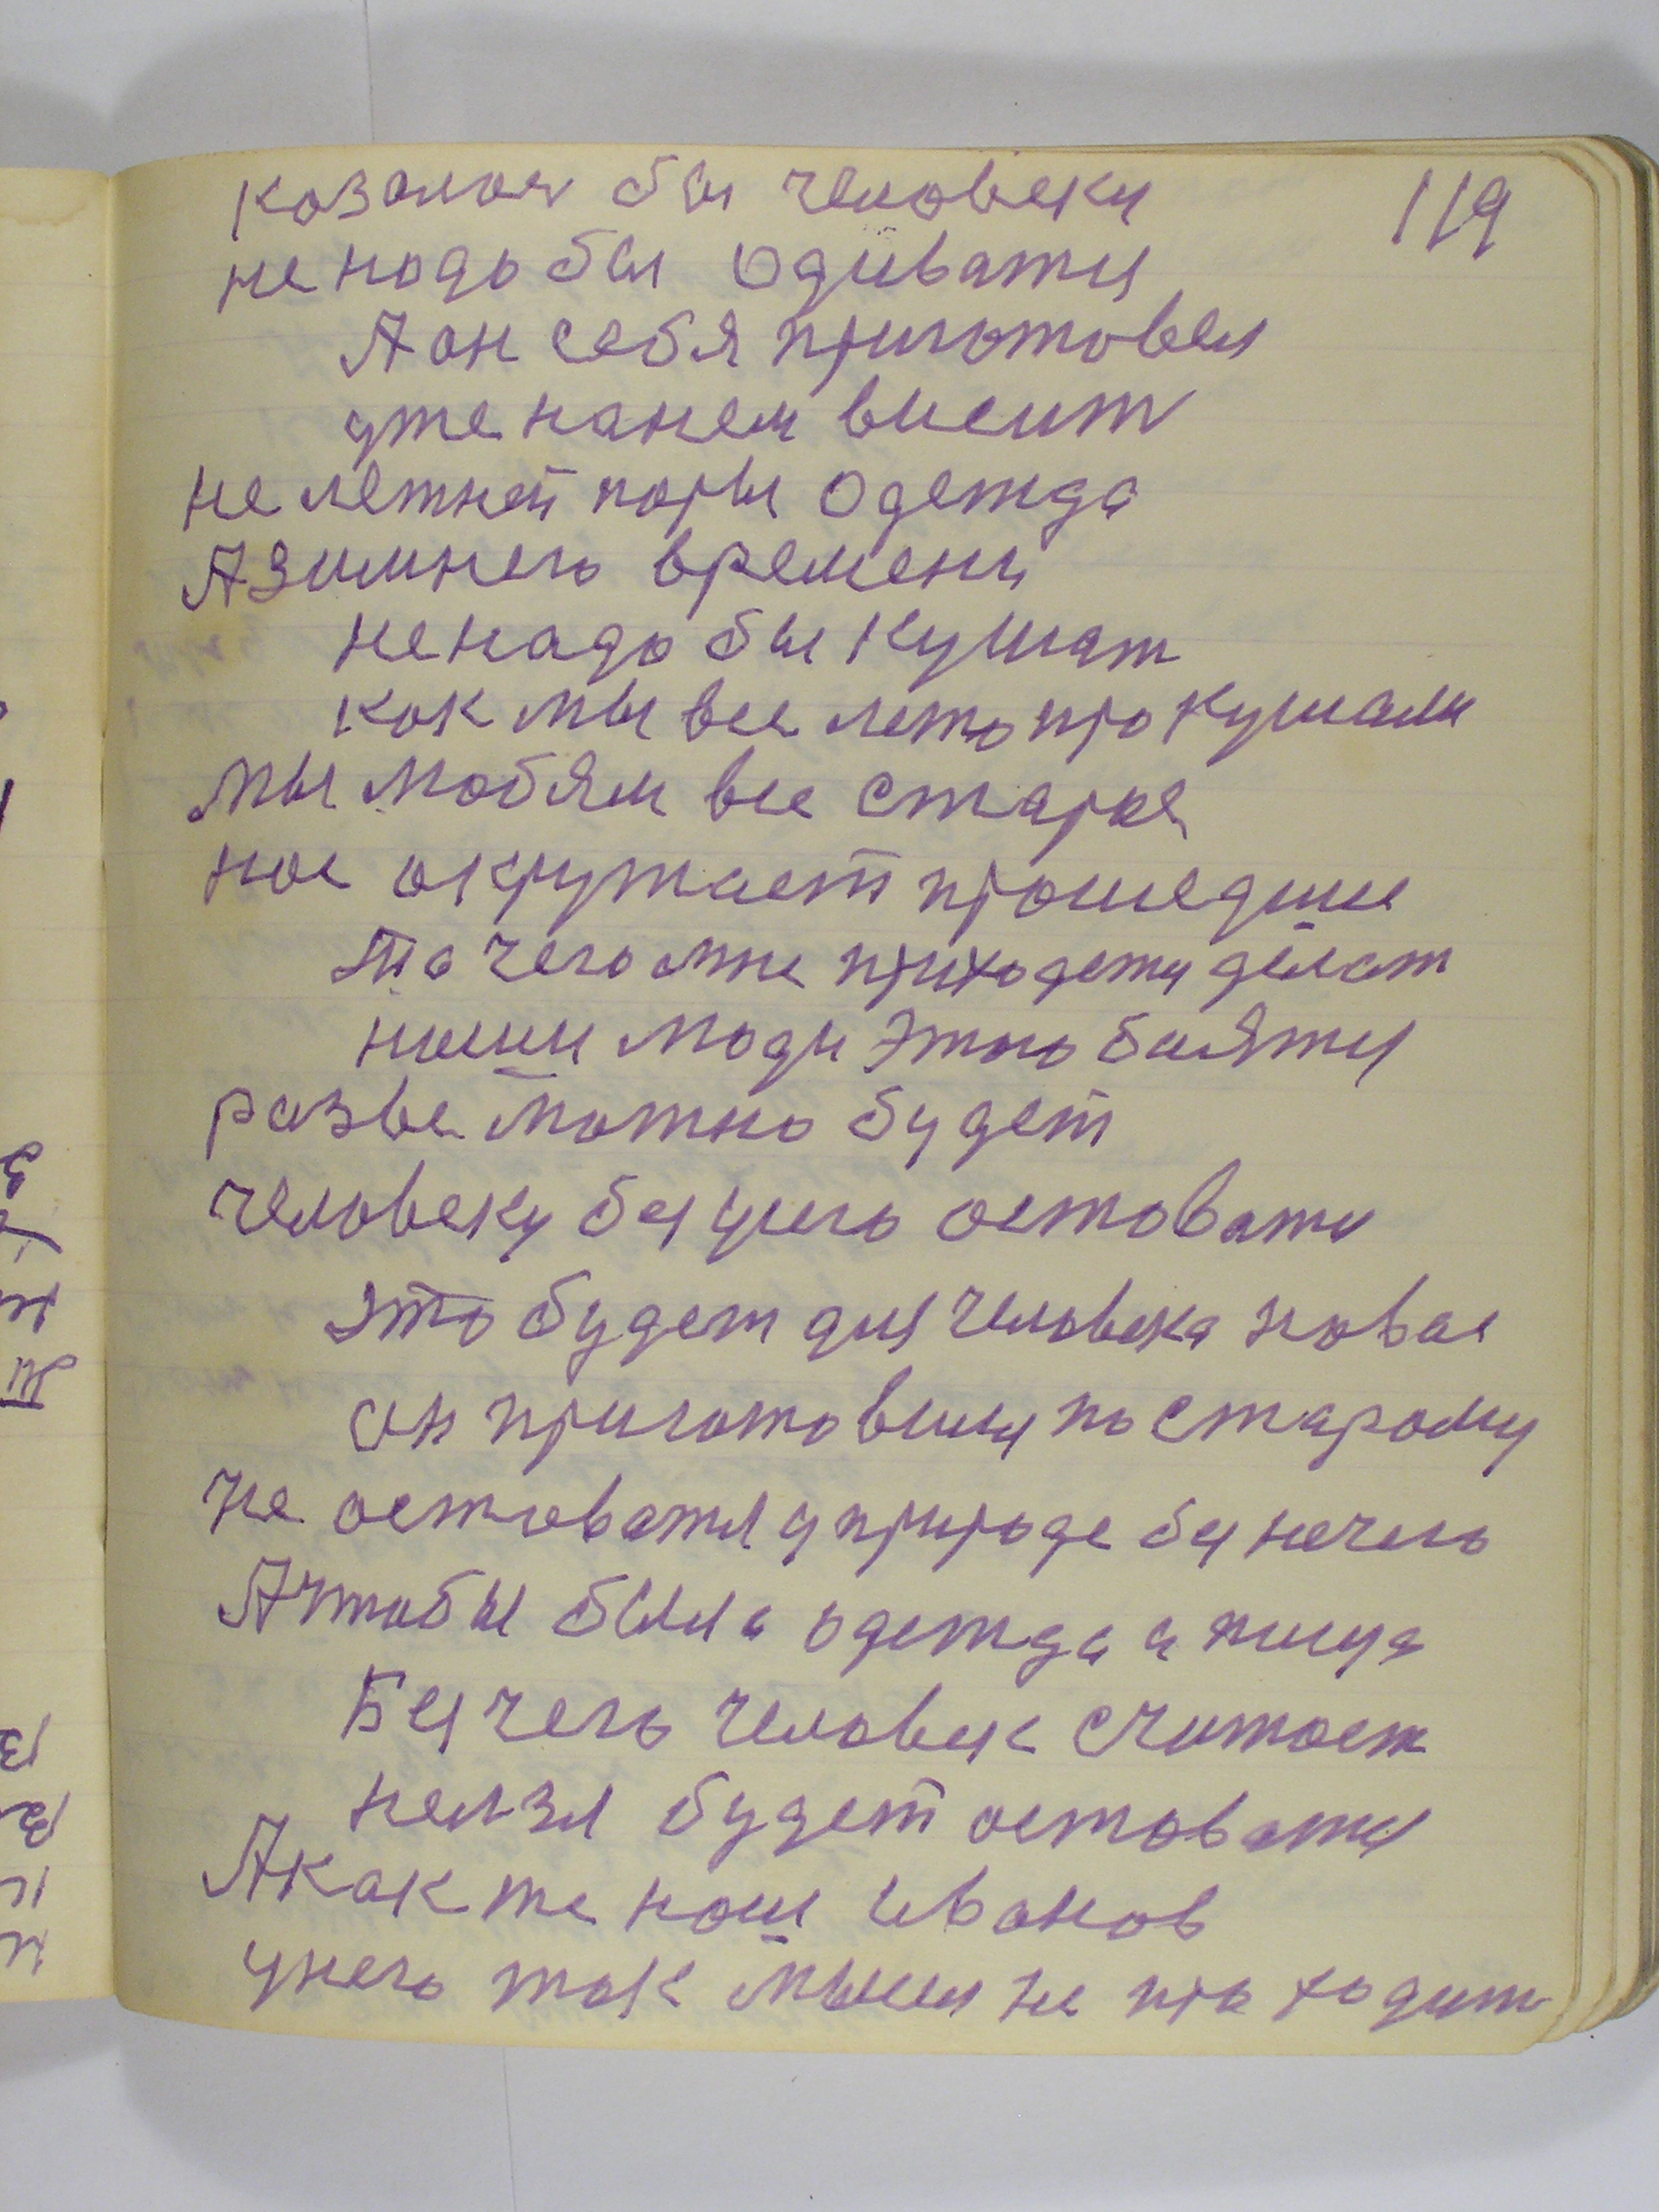 119
козалос бы человеку
не нодо бы Одиватця
А он себя приготовел
уже нанем висит
не летней поры Одежда
А зимнего времени
ненадо бы кушат
как мы все лето прокушали
мы любям все старое
нас окружает прошедшие
То чего мне приходетц делат
наши люди этого баятця
разве можно будет
человеку без чего остоватц
это будет для человека новае
он приготовился по старому
не остоватця у природе без нечего
А чтобы была одежда и пища
Без чего человек считает
нелзя будет остоватця
А как же наш Иванов
унего так мысля не проходит